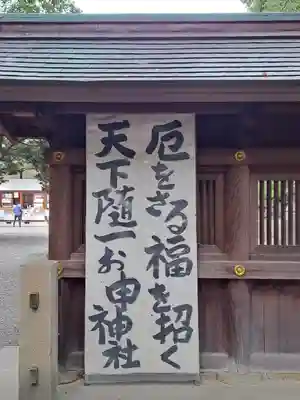 厄をさる福を招く
天下随一お申神社